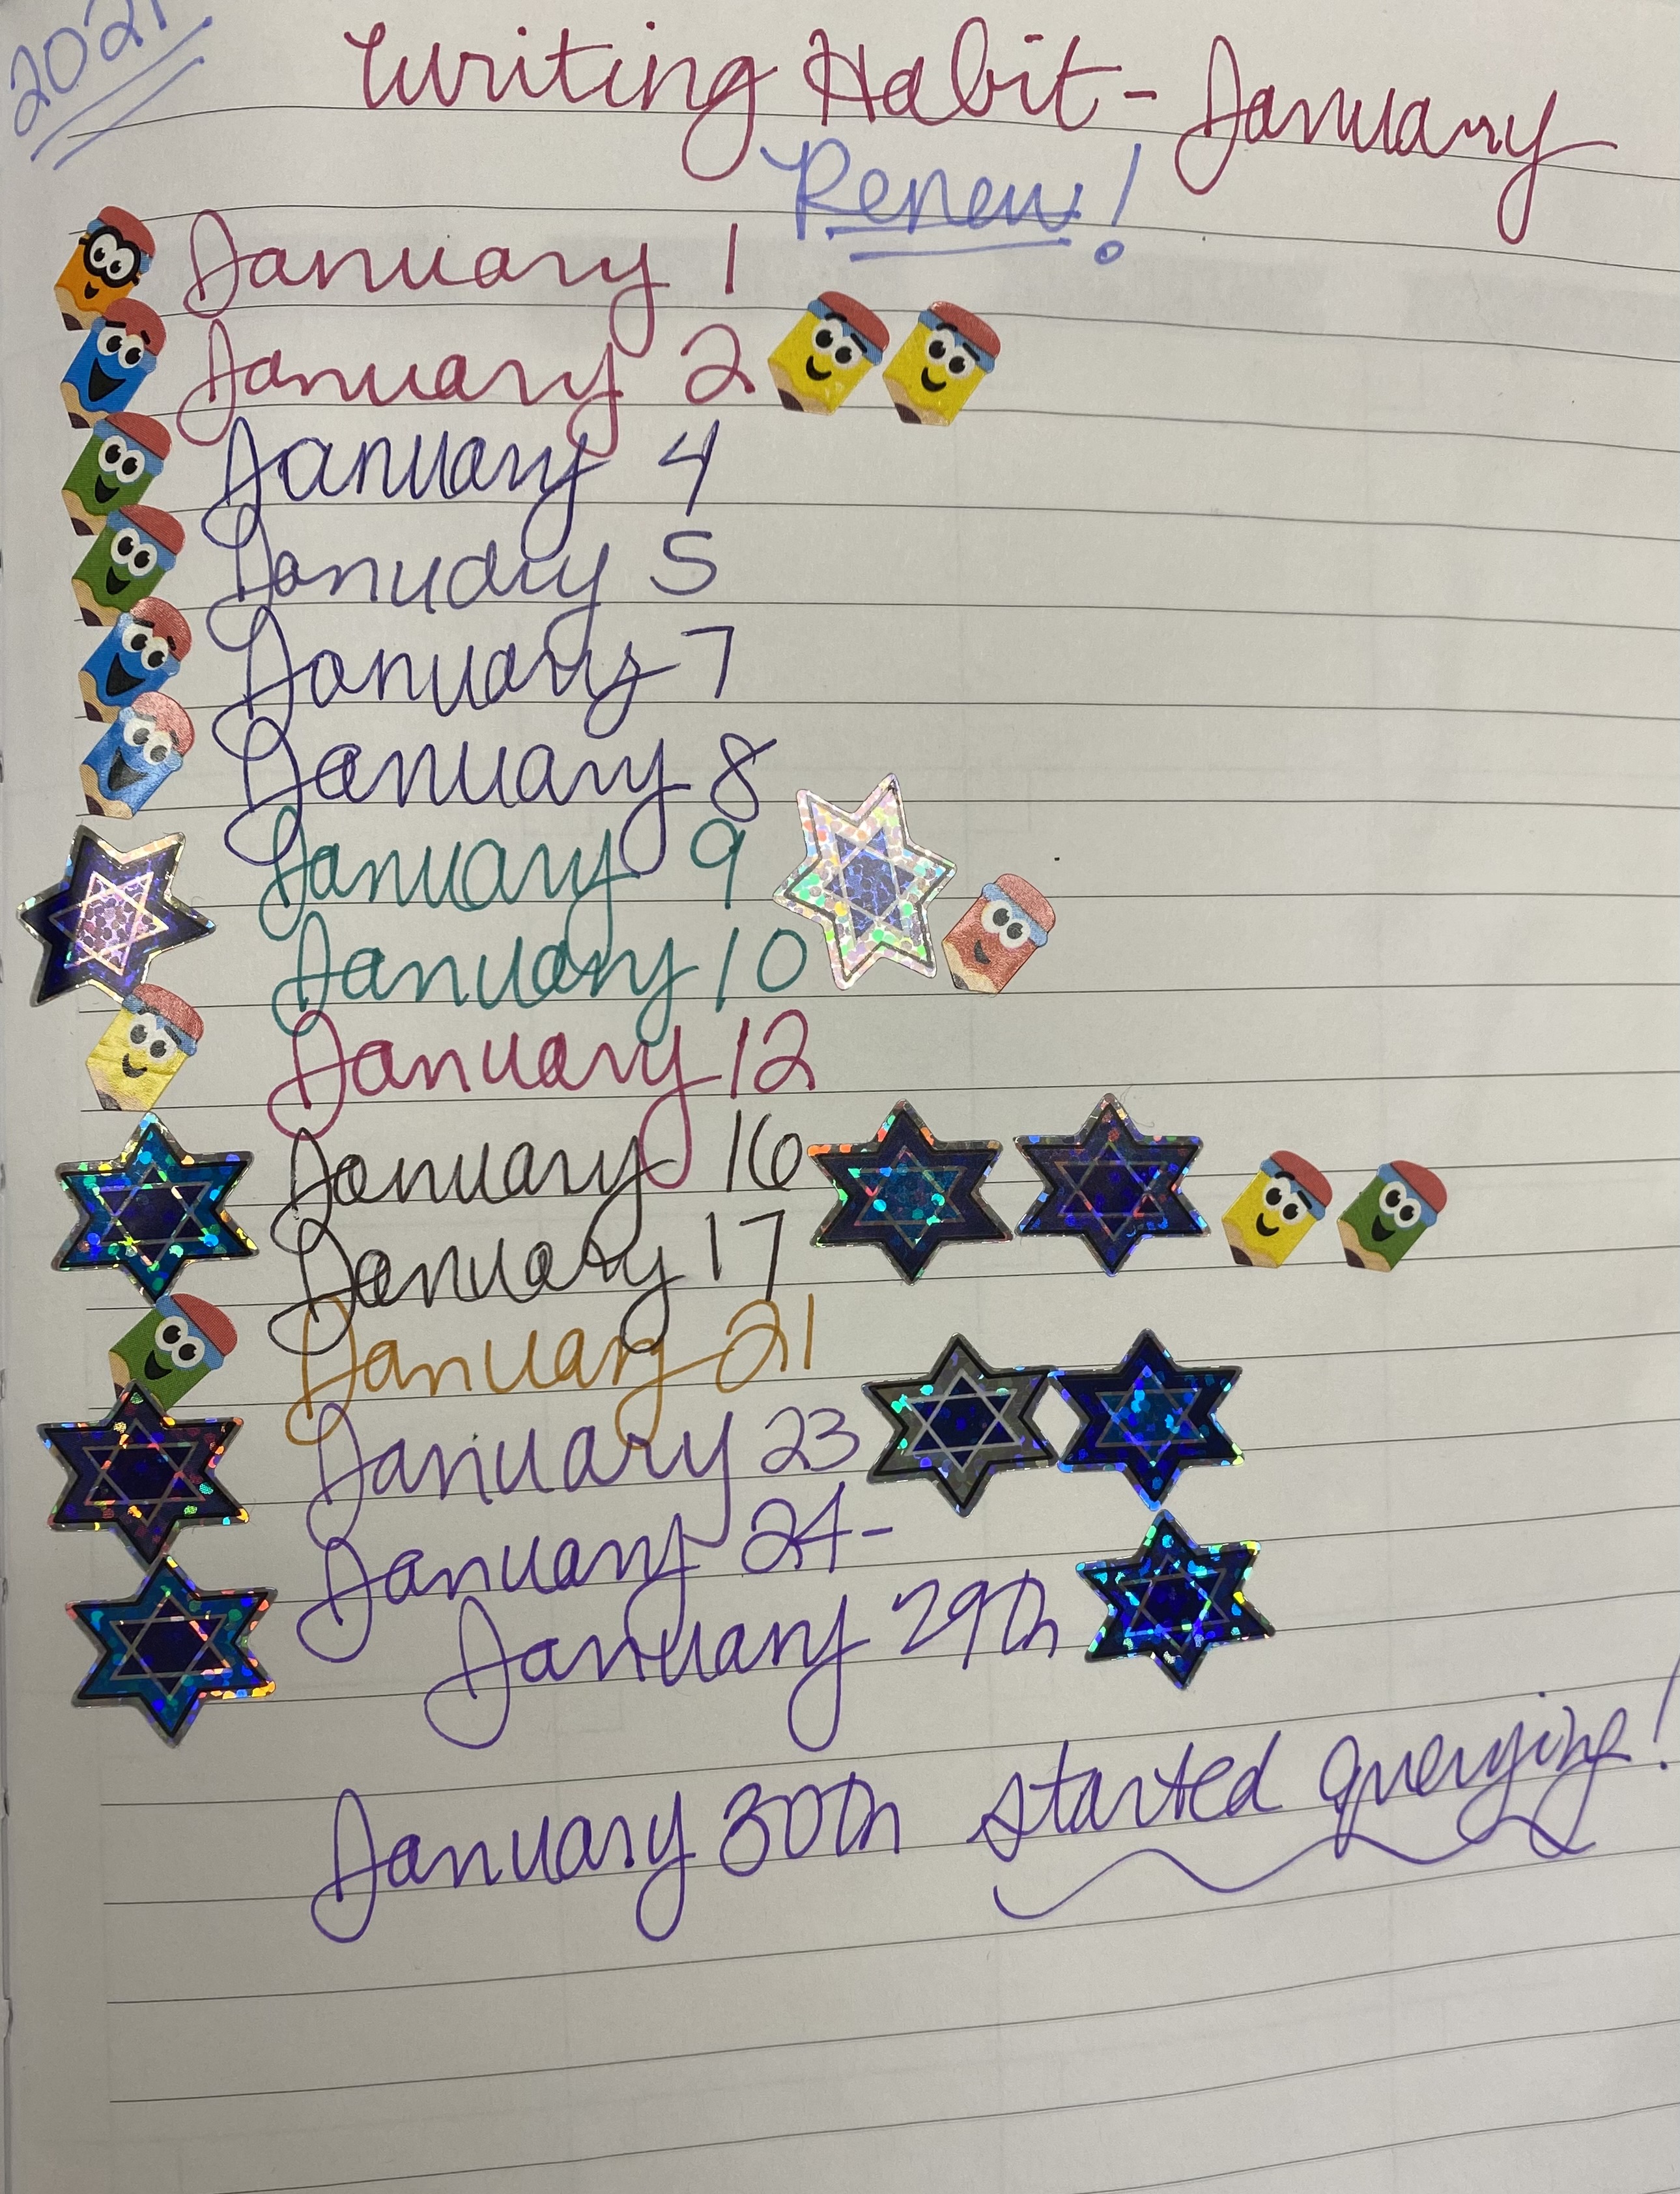 2021
Writing Habit - January
Renew!
January 1
January 2
January 4
January 5
January 7
January 8
January 9
January 10
January 12
January 16
January 17
January 21
January 23
January 24-
January 29th
January 30th started querying!